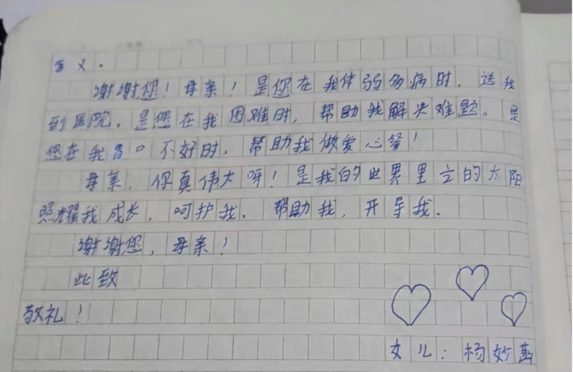 含义。
谢谢您！母亲！是您在我体弱多病时，送我
到医院。是您在我困难时，帮助我解决难题。是
您在我胃口不好时，帮助我做爱心餐！
母亲，你真伟大呀！是我的世界里的太阳
照耀我成长，呵护我。帮助我，开导我。
谢谢您，母亲！
此致
敬礼！
女儿：杨妙